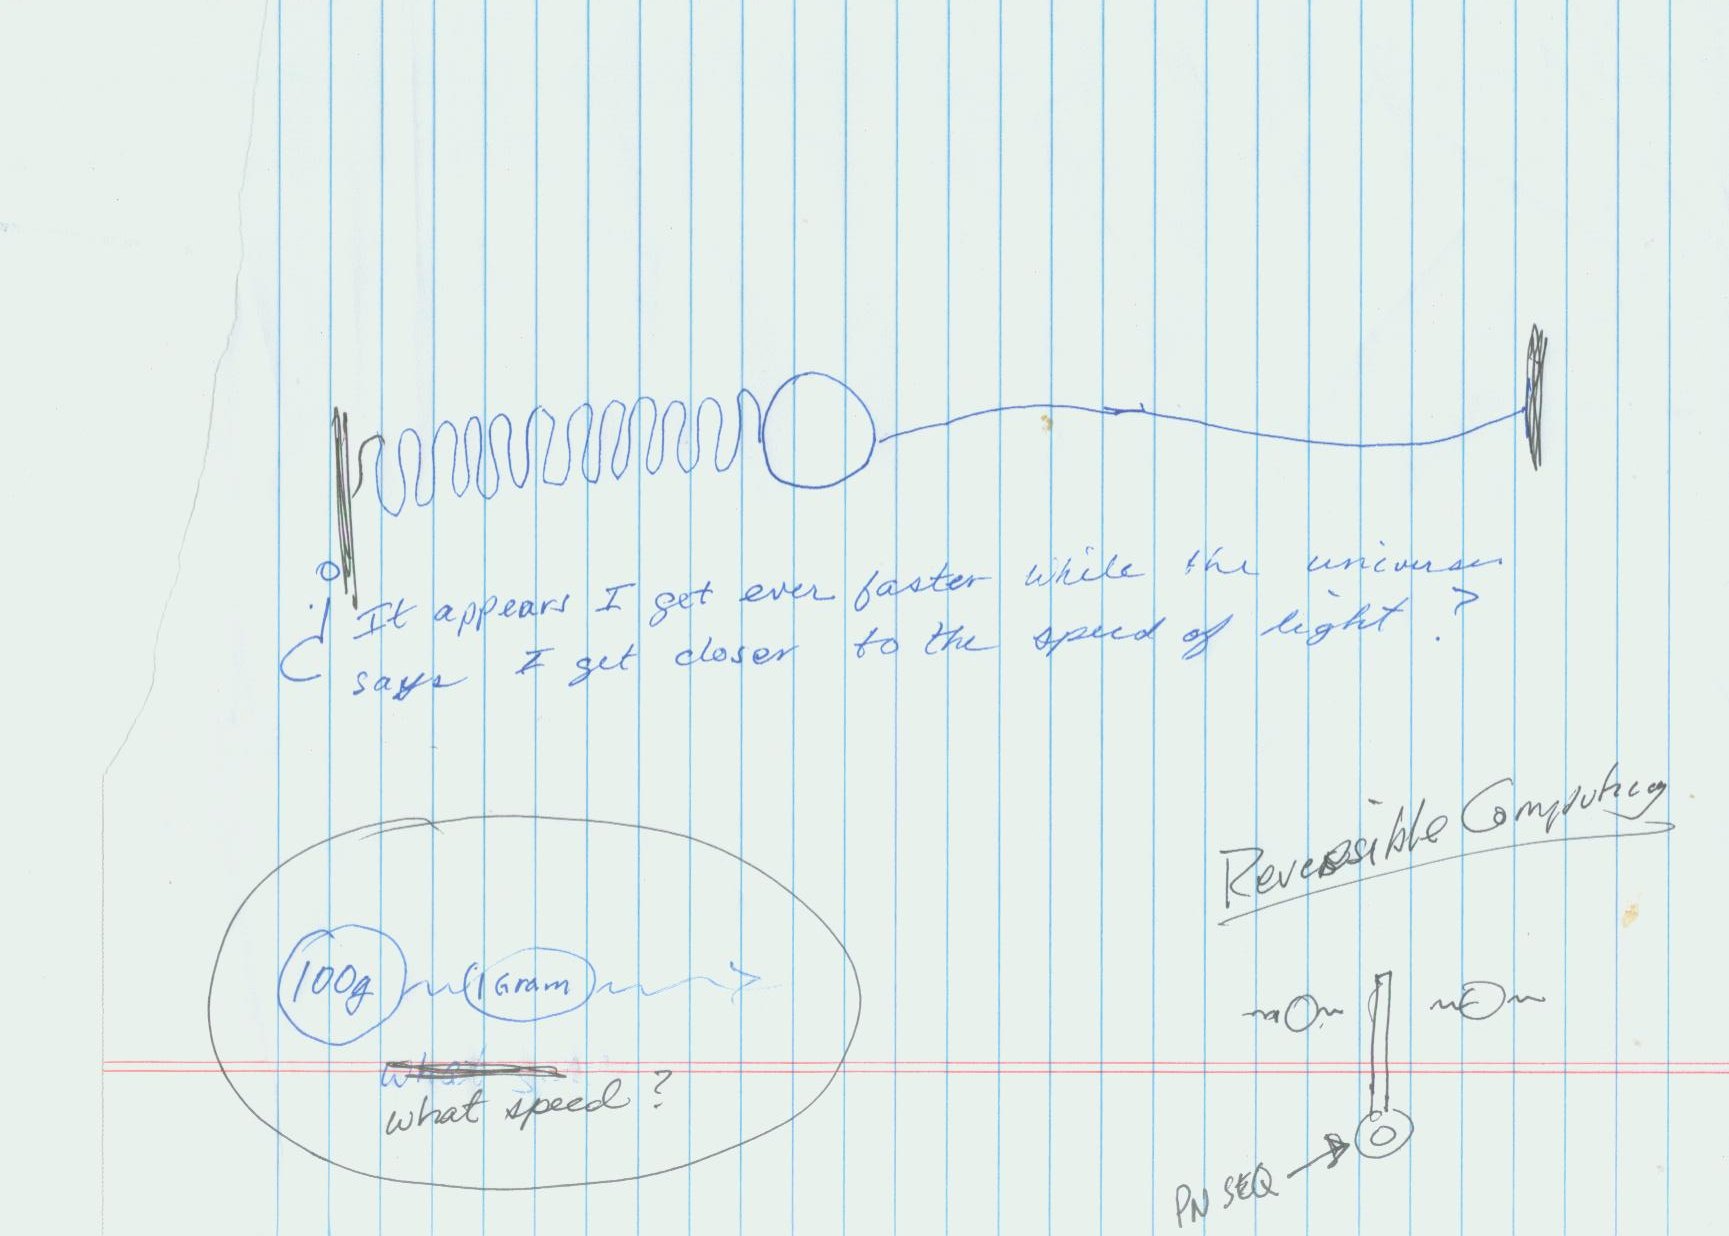 It appears I get ever faster while the universe
says I get closer to the speed of light?
Reversible Computing
100g
1 Gram
what speed?
PN SEQ